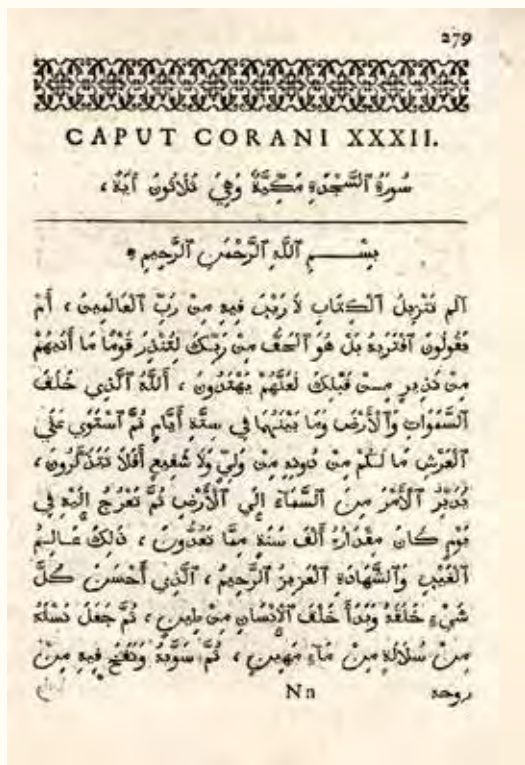 279
CAPUT CORANI XXXII.
سُورَةُ ٱلسَّجْدَةِ مَكِّيَّةٌ وَهِيَ ثَلَاثُونَ آيَةً ،
بِسْــــمِ ٱللَّهِ ٱلرَّحْمٰنِ ٱلرَّحِيمِ
الم تَنْزِيلُ ٱلْكِتَابِ لَا رَيْبَ فِيهِ مِنْ رَبِّ ٱلْعَالَمِينَ ، أَمْ
يَقُولُونَ ٱفْتَرَيهُ بَلْ هُوَ ٱلْحَقُّ مِنْ رَبِّكَ لِتُنْذِرَ قَوْمًا مَا أَتَيهُمْ
مِنْ نَذِيرٍ مِنْ قَبْلِكَ لَعَلَّهُمْ يَهْتَدُونَ ، أَللَّهُ ٱلَّذِي خَلَقَ
ٱلسَّمَوَاتِ وَٱلْأَرْضَ وَمَا بَيْنَهُمَا فِي سِتَّةِ أَيَّامٍ ثُمَّ ٱسْتَوَي عَلَي
ٱلْعَرْشِ مَا لَكُمْ مِنْ دُونِهِ مِنْ وَلِيٍّ وَلَا شَفِيعٍ أَفَلَا تَتَذَكَّرُونَ ،
يُدَبِّرُ ٱلْأَمْرَ مِنَ ٱلسَّمَآءِ إِلَي ٱلْأَرْضِ ثُمَّ يَعْرُجُ إِلَيْهِ فِي
يَوْمٍ كَانَ مِقْدَارُهُ أَلْفَ سَنَةٍ مِمَّا تَعُدُّونَ ، ذَلِكَ عَالِمُ
ٱلْغَيْبِ وَٱلشَّهَادَةِ ٱلْعَزِيزُ ٱلرَّحِيمُ ، ٱلَّذِي أَحْسَنَ كُلَّ
شَيْءٍ خَلَقَهُ وَبَدَأَ خَلْقَ ٱلْإِنْسَانِ مِنْ طِينٍ ، ثُمَّ جَعَلَ نَسْلَهُ
مِنْ سُلَالَةٍ مِنْ مَآءٍ مَهِينٍ ، ثُمَّ سَوَّيهُ وَنَفَخَ فِيهِ مِنْ
Nn روحه